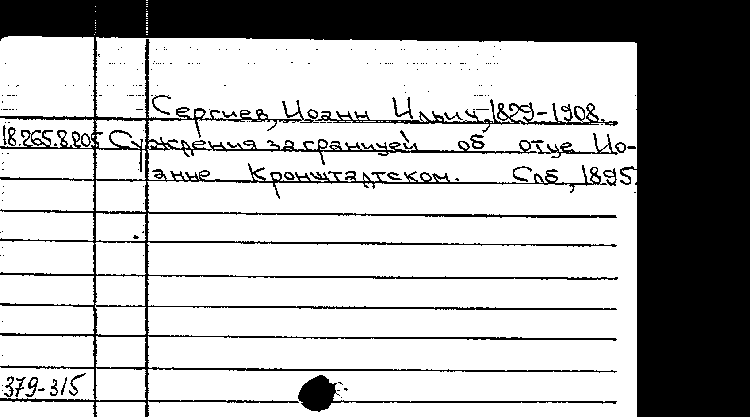 Сергиев, Иоанн Ильич, 1829-1908.
18.265.8.205 Суждения заграницей об отце Ио-
анне Кронштадтском. Спб, 1895.
379-315